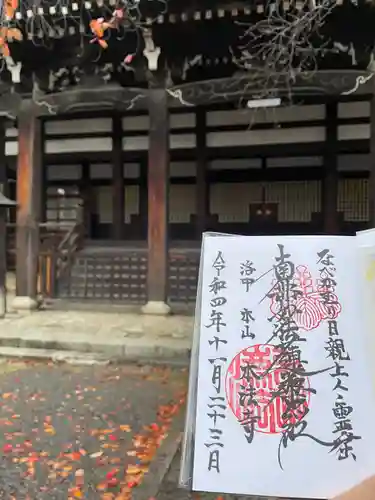 なべかむり日親上人
南無妙法蓮華経
洛中 本山 本法寺
令和四年十一月二十三日